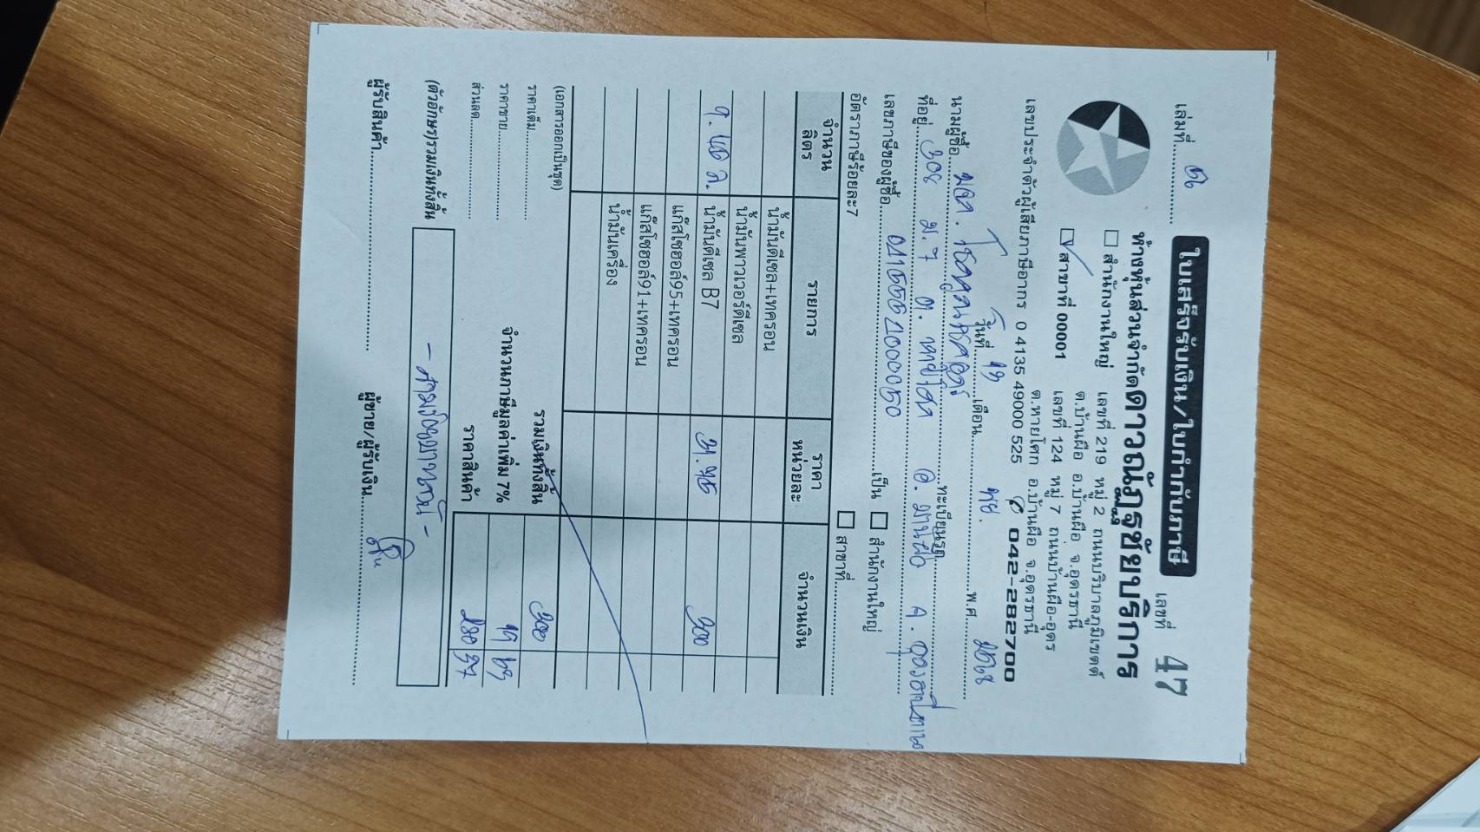 เล่มที่
ใบเสร็จรับเงิน/ใบกำกับภาษี
เลขที่ 47
ห้างหุ้นส่วนจำกัดดาวณัฏฐชัยบริการ
☐ สำนักงานใหญ่ เลขที่ 219 หมู่ 2 ถนนบริบาลภูมิเขตต์
ต.บ้านผือ อ.บ้านผือ จ.อุดรธานี
☑ สาขาที่ 00001 เลขที่ 124 หมู่ 7 ถนนบ้านผือ-อุดร
ต.หายโศก อ.บ้านผือ จ.อุดรธานี
เลขประจำตัวผู้เสียภาษีอากร 0 4135 49000 525 ✆ 042-282700
วันที่ เดือน พย. พ.ศ.
นามผู้ซื้อ
ที่อยู่ 308 ม.7 ต. หายโศก อ. บ้านผือ จ. อุดรธานี
ทะเบียนรถ
เลขภาษีของผู้ซื้อ เป็น ☐ สำนักงานใหญ่
อัตราภาษีร้อยละ7 ☐ สาขาที่
จำนวนลิตร รายการ ราคาหน่วยละ จำนวนเงิน
น้ำมันดีเซล+เทครอน
น้ำมันพาวเวอร์ดีเซล
น้ำมันดีเซล B7 300
แก๊สโซฮอล์95+เทครอน
แก๊สโซฮอล์91+เทครอน
น้ำมันเครื่อง
(เอกสารออกเป็นชุด)
ราคาเต็ม รวมเงินทั้งสิ้น 300
ราคาขาย จำนวนภาษีมูลค่าเพิ่ม 7%
ส่วนลด ราคาสินค้า 280 37
(ตัวอักษรรวมเงินทั้งสิ้น - สามร้อยบาทถ้วน -
ผู้รับสินค้า ผู้ขาย/ผู้รับเงิน